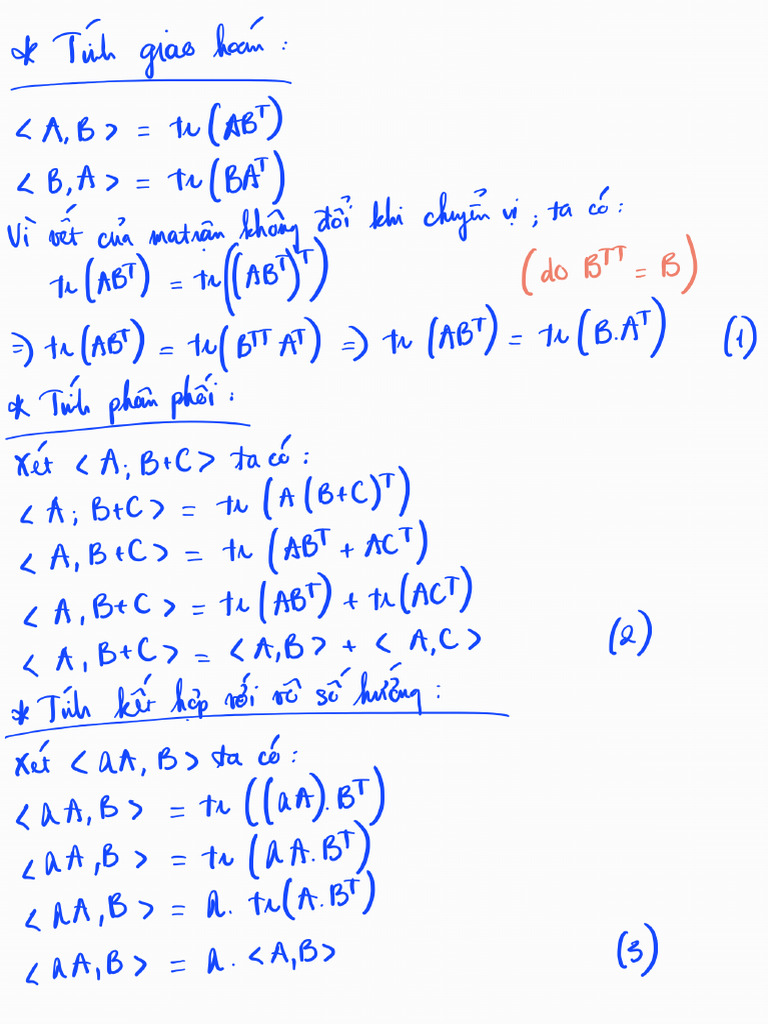 * Tính giao hoán :
< A, B > = tr(ABᵀ)
< B, A > = tr(BAᵀ)
Vì vết của ma trận không đổi khi chuyển vị ; ta có :
tr(ABᵀ) = tr((ABᵀ)ᵀ) (do Bᵀᵀ = B)
=> tr(ABᵀ) = tr(Bᵀᵀ Aᵀ) => tr(ABᵀ) = tr(B.Aᵀ) (1)
* Tính phân phối :
Xét < A; B+C > ta có :
< A; B+C > = tr(A(B+C)ᵀ)
< A, B+C > = tr(ABᵀ + ACᵀ)
< A, B+C > = tr(ABᵀ) + tr(ACᵀ)
< A, B+C > = < A,B > + < A,C > (2)
* Tính kết hợp với vô số hướng :
Xét < aA, B > ta có :
< aA, B > = tr((aA).Bᵀ)
< aA, B > = tr(aA.Bᵀ)
< aA, B > = a. tr(A.Bᵀ)
< aA, B > = a. <A,B> (3)